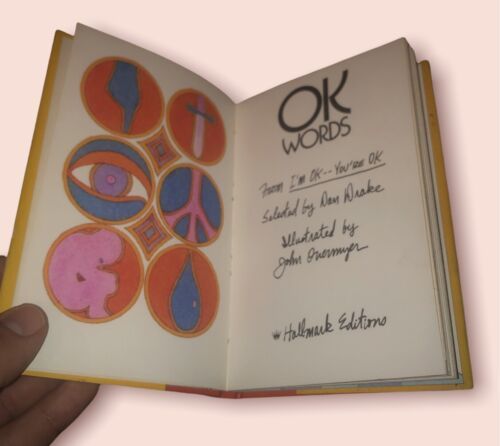 OK
WORDS
From I'm OK--You're OK
Selected by Dan Drake
Illustrated by
John Overmyer
Hallmark Editions